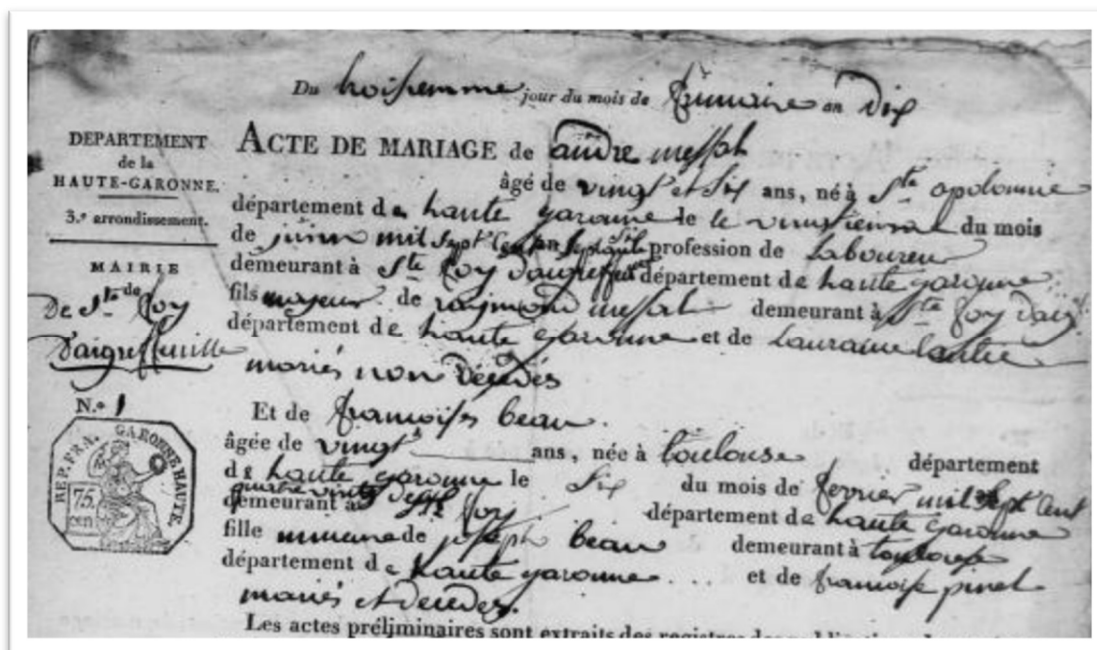 Du troisieme jour du mois de frimaire an Dix
DEPARTEMENT
de la
HAUTE-GARONNE.
3.e arrondissement.
MAIRIE
de
De Ste foy
D'aigrefeuille
N.o 1
REP. FRA. GARONNE HAUTE
75.
cen
ACTE DE MARIAGE de andre
âgé de vingt et six ans, né à Ste apolonnie
département de haute garonne le du mois
de juin mil sept cent profession de Laboureur
demeurant à Ste foy d'aigrefeuille département de haute garonne
fils majeur de raymond demeurant à Ste foy d'aig
département de haute garonne et de
mariés non décédés
Et de françoise beau
âgée de vingt ans, née à toulouse département
de haute garonne le six du mois de fevrier mil sept cent
quatre vingt
demeurant à Ste foy département de haute garonne
fille mineure de joseph beau demeurant à toulouse
département de haute garonne ... et de françoise pinel
mariés et décédés.
Les actes préliminaires sont extraits des registres